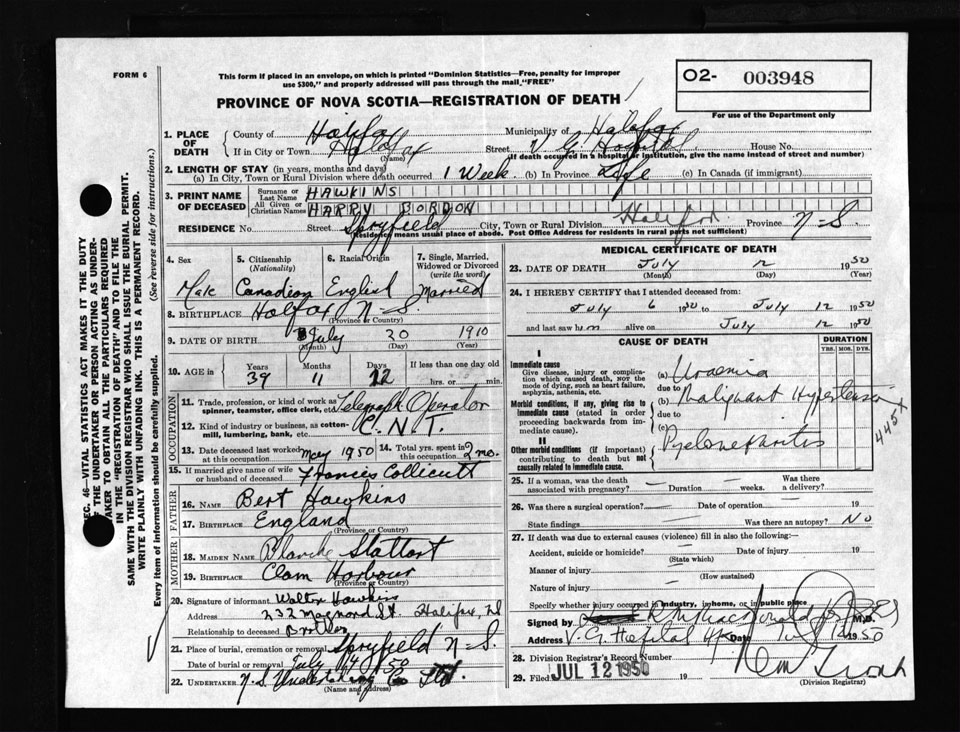 FORM 6
This form if placed in an envelope, on which is printed "Dominion Statistics—Free, penalty for improper
use $300," and properly addressed will pass through the mail "FREE"
O2- 003948
For use of the Department only
PROVINCE OF NOVA SCOTIA—REGISTRATION OF DEATH
1. PLACE OF DEATH
County of Halifax Municipality of Halifax
If in City or Town Halifax (Name) Street V G Hospital House No.
(If death occurred in a hospital or institution, give the name instead of street and number)
2. LENGTH OF STAY (in years, months and days)
(a) In City, Town or Rural Division where death occurred 1 Week (b) In Province Life (c) In Canada (if immigrant)
3. PRINT NAME OF DECEASED
Surname or Last Name HAWKINS
All Given or Christian Names HARRY BORDON
RESIDENCE No. Street Spryfield City, Town or Rural Division Halifax Province N-S
(Residence means usual place of abode. Post Office Address for residents in rural parts not sufficient)
4. Sex 5. Citizenship (Nationality) 6. Racial Origin 7. Single, Married, Widowed or Divorced (write the word)
Male Canadian English Married
8. BIRTHPLACE Halifax N-S.
(Province or Country)
9. DATE OF BIRTH July 20 1910
(Month) (Day) (Year)
10. AGE in Years Months Days If less than one day old
39 11 12 hrs. or min.
OCCUPATION
11. Trade, profession, or kind of work as spinner, teamster, office clerk, etc. Telegraph Operator
12. Kind of industry or business, as cotton-mill, lumbering, bank, etc. C.N.T.
13. Date deceased last worked at this occupation May 1950 14. Total yrs. spent in this occupation 2 mo.
15. If married give name of wife or husband of deceased Francis Collicutt
FATHER
16. Name Bert Hawkins
17. Birthplace England
(Province or Country)
MOTHER
18. Maiden Name Blanche
19. Birthplace Clam Harbour
(Province or Country)
20. Signature of informant Walter Hawkins
Address 232 Maynard St. Halifax, NS
Relationship to deceased Brother
21. Place of burial, cremation or removal Spryfield N-S.
Date of burial or removal July 14 50
22. UNDERTAKER N.S. Undertaking Co Ltd.
(Name and Address)
MEDICAL CERTIFICATE OF DEATH
23. DATE OF DEATH July 12 1950
(Month) (Day) (Year)
24. I HEREBY CERTIFY that I attended deceased from
July 6 1950 to July 12 1950
and last saw him alive on July 12 1950
CAUSE OF DEATH
DURATION
YRS. MOS. DYS.
I
Immediate cause
Give disease, injury or complication which caused death, not the mode of dying, such as heart failure, asphyxia, asthenia, etc.
(a) Uraemia
due to
Morbid conditions, if any, giving rise to immediate cause (stated in order proceeding backwards from immediate cause).
(b) Malignant Hypertension
due to
(c)
II
Other morbid conditions (if important) contributing to death but not causally related to immediate cause.
Pyelonephritis
445X
25. If a woman, was the death associated with pregnancy? — Duration — weeks. Was there a delivery? —
26. Was there a surgical operation? — Date of operation 19
State findings — Was there an autopsy? No
27. If death was due to external causes (violence) fill in also the following:—
Accident, suicide or homicide? — Date of injury 19
(State which)
Manner of injury —
(How sustained)
Nature of injury —
Specify whether injury occurred in industry, in home, or in public place
Signed by MacDonald M.D.
Address V.G. Hospital Date 1950
28. Division Registrar's Record Number
29. Filed JUL 12 1950 19
(Division Registrar)
SEC. 46—VITAL STATISTICS ACT MAKES IT THE DUTY
OF THE UNDERTAKER OR PERSON ACTING AS UNDER-
TAKER TO OBTAIN ALL THE PARTICULARS REQUIRED
IN THE "REGISTRATION OF DEATH" AND TO FILE THE
SAME WITH THE DIVISION REGISTRAR WHO SHALL ISSUE THE BURIAL PERMIT.
WRITE PLAINLY WITH UNFADING INK. THIS IS A PERMANENT RECORD.
Every item of information should be carefully supplied. (See reverse side for instructions.)